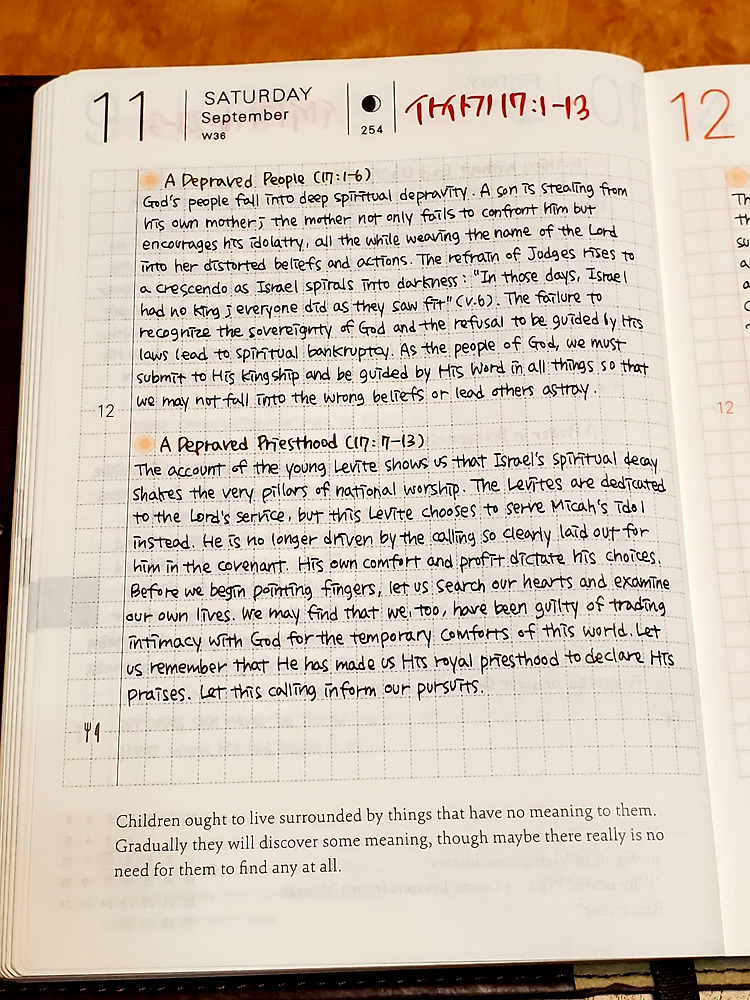 11
SATURDAY
September
W36
254
사사기 17:1-13
A Depraved People (17:1-6)
God's people fall into deep spiritual depravity. A son is stealing from
his own mother; the mother not only fails to confront him but
encourages his idolatry, all the while weaving the name of the Lord
into her distorted beliefs and actions. The refrain of Judges rises to
a crescendo as Israel spirals into darkness: "In those days, Israel
had no king; everyone did as they saw fit" (v.6). The failure to
recognize the sovereignty of God and the refusal to be guided by His
laws lead to spiritual bankruptcy. As the people of God, we must
submit to His kingship and be guided by His Word in all things so that
we may not fall into the wrong beliefs or lead others astray.
12
A Depraved Priesthood (17:7-13)
The account of the young Levite shows us that Israel's spiritual decay
shakes the very pillars of national worship. The Levites are dedicated
to the Lord's service, but this Levite chooses to serve Micah's idol
instead. He is no longer driven by the calling so clearly laid out for
him in the covenant. His own comfort and profit dictate his choices.
Before we begin pointing fingers, let us search our hearts and examine
our own lives. We may find that we, too, have been guilty of trading
intimacy with God for the temporary comforts of this world. Let
us remember that He has made us His royal priesthood to declare His
praises. Let this calling inform our pursuits.
Children ought to live surrounded by things that have no meaning to them.
Gradually they will discover some meaning, though maybe there really is no
need for them to find any at all.
12
Th
th
su
a
12